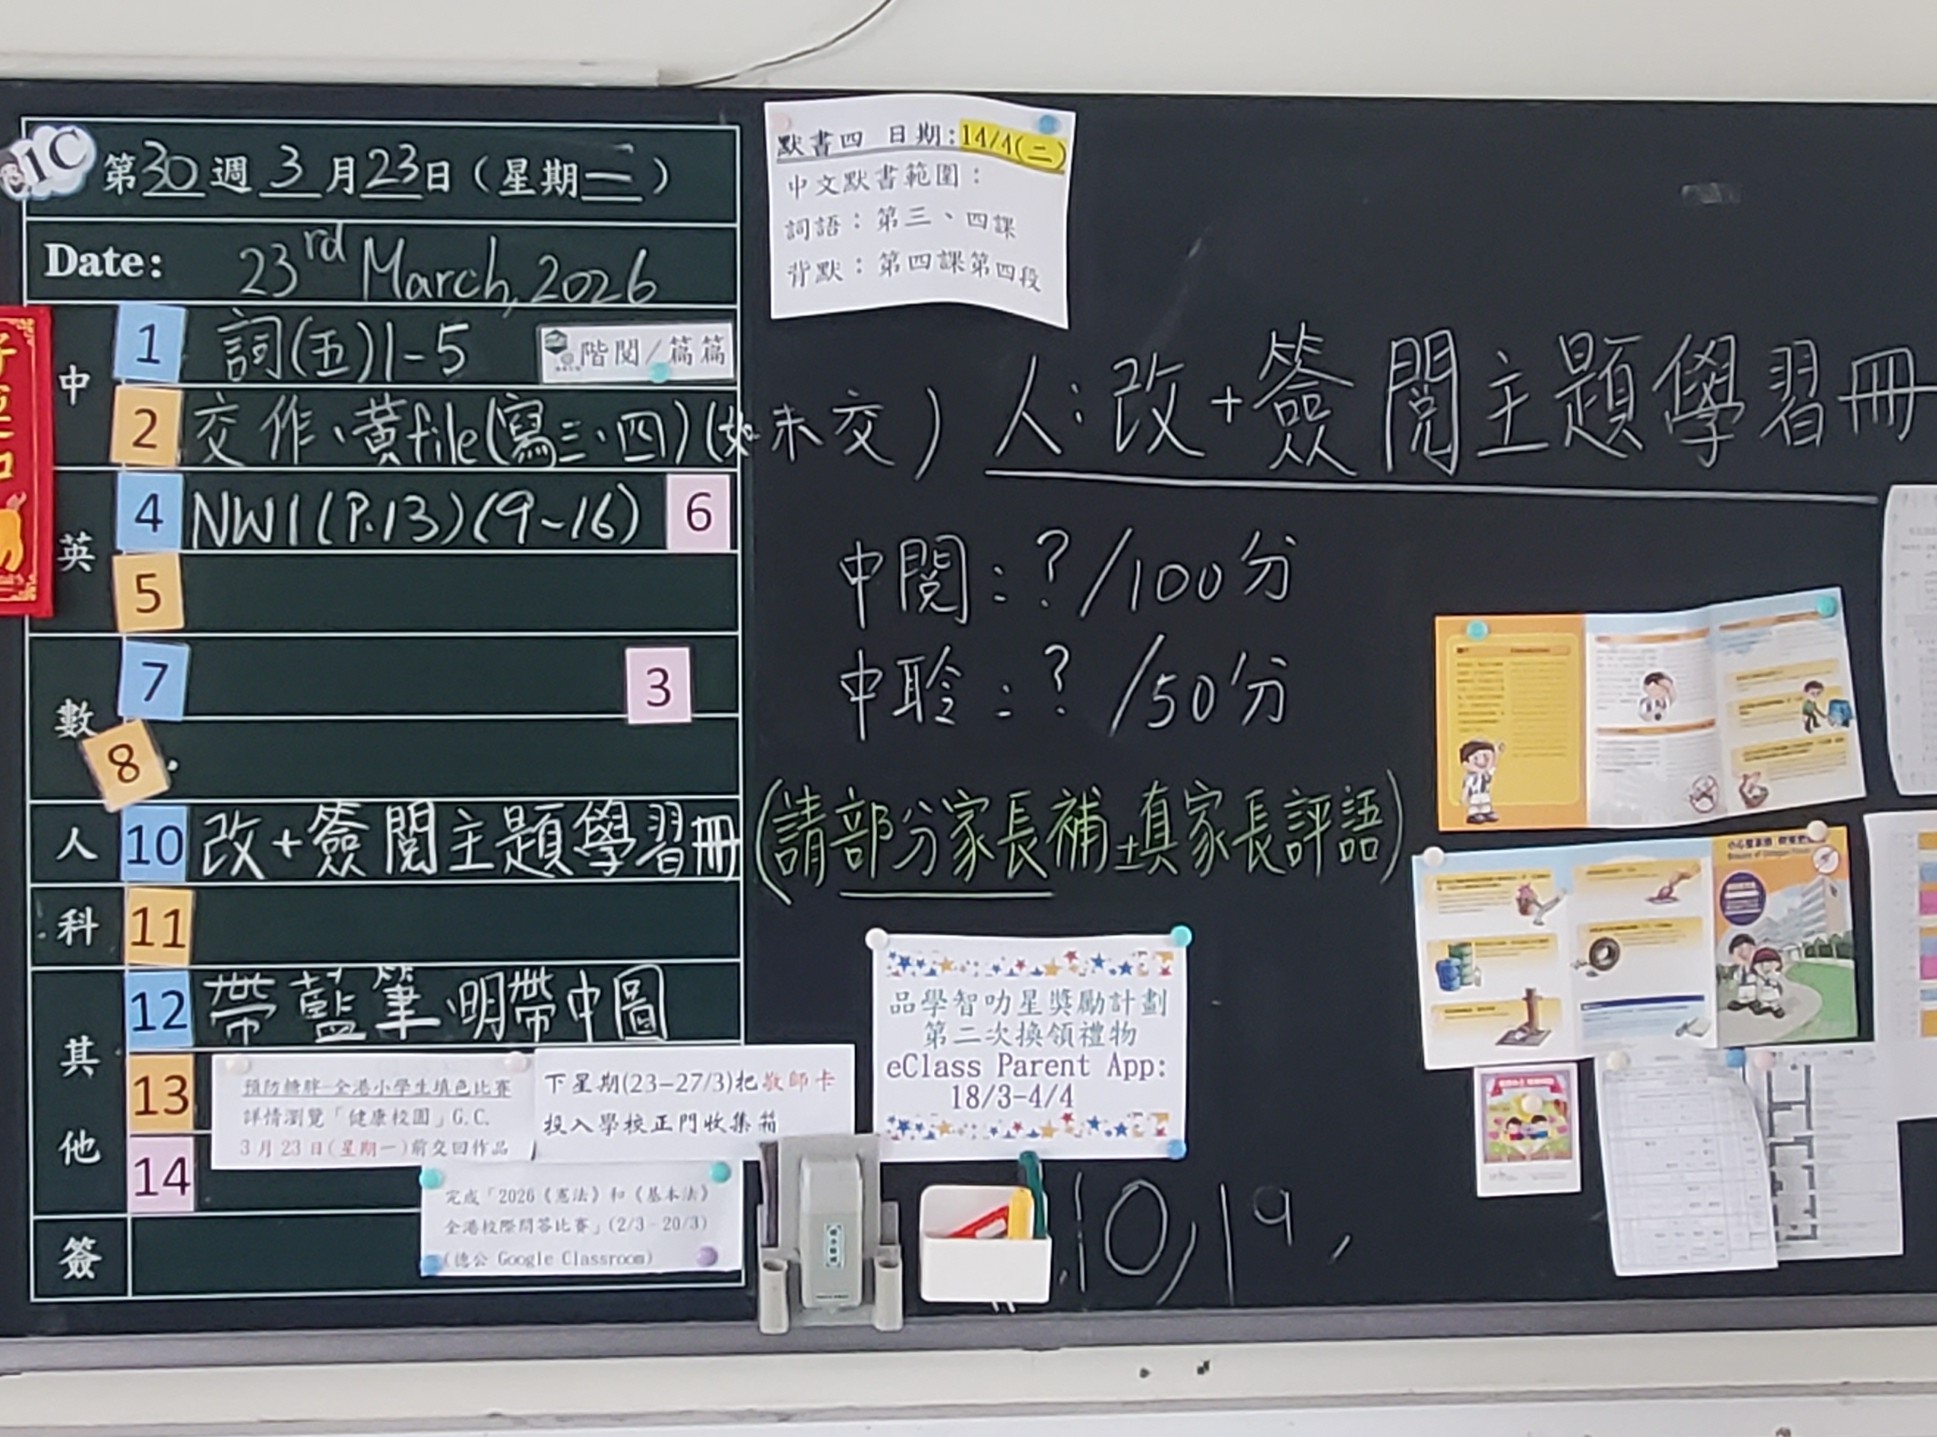 1C
第30週 3月23日(星期一)
Date: 23rd March, 2026
中
1 詞(五)1-5 階閱/篇篇
2 交作、黃file(寫三、四)(如未交)
英
4 NW1(P.13)(9-16) 6
5
數
7 3
8
人
10 改+簽閱主題學習冊(請部分家長補填家長評語)
科
11
其他
12 帶藍筆、明帶中圖
13
14
簽
預防糖胖-全港小學生填色比賽
詳情瀏覽「健康校園」G.C.
3月23日(星期一)前交回作品
下星期(23-27/3)把敬師卡
投入學校正門收集箱
完成「2026《憲法》和《基本法》
全港校際問答比賽」(2/3-20/3)
(德公 Google Classroom)
默書四 日期:14/4(二)
中文默書範圍：
詞語：第三、四課
背默：第四課第四段
人:改+簽閱主題學習冊
中閱:?/100分
中聆:?/50分
品學智叻星獎勵計劃
第二次換領禮物
eClass Parent App:
18/3-4/4
10,19,